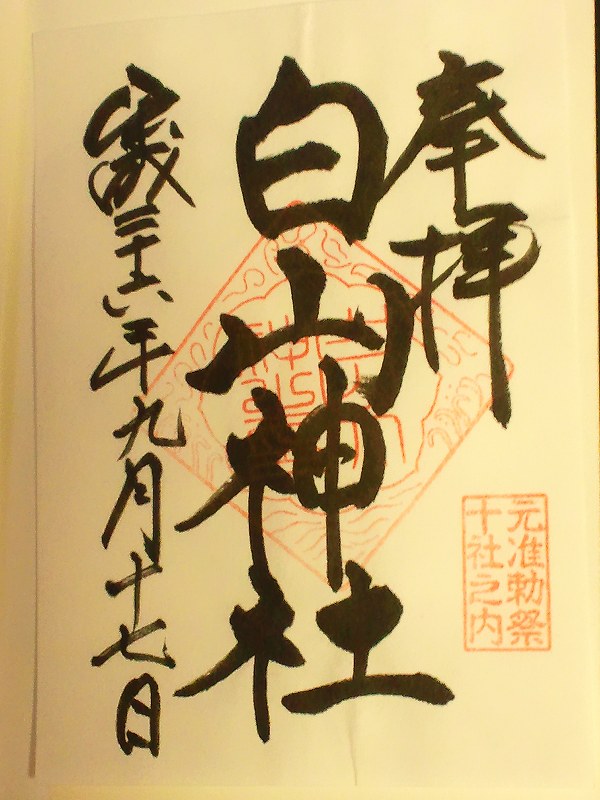 奉拝
白山神社
平成二十六年九月十七日
元准勅祭
十社之内